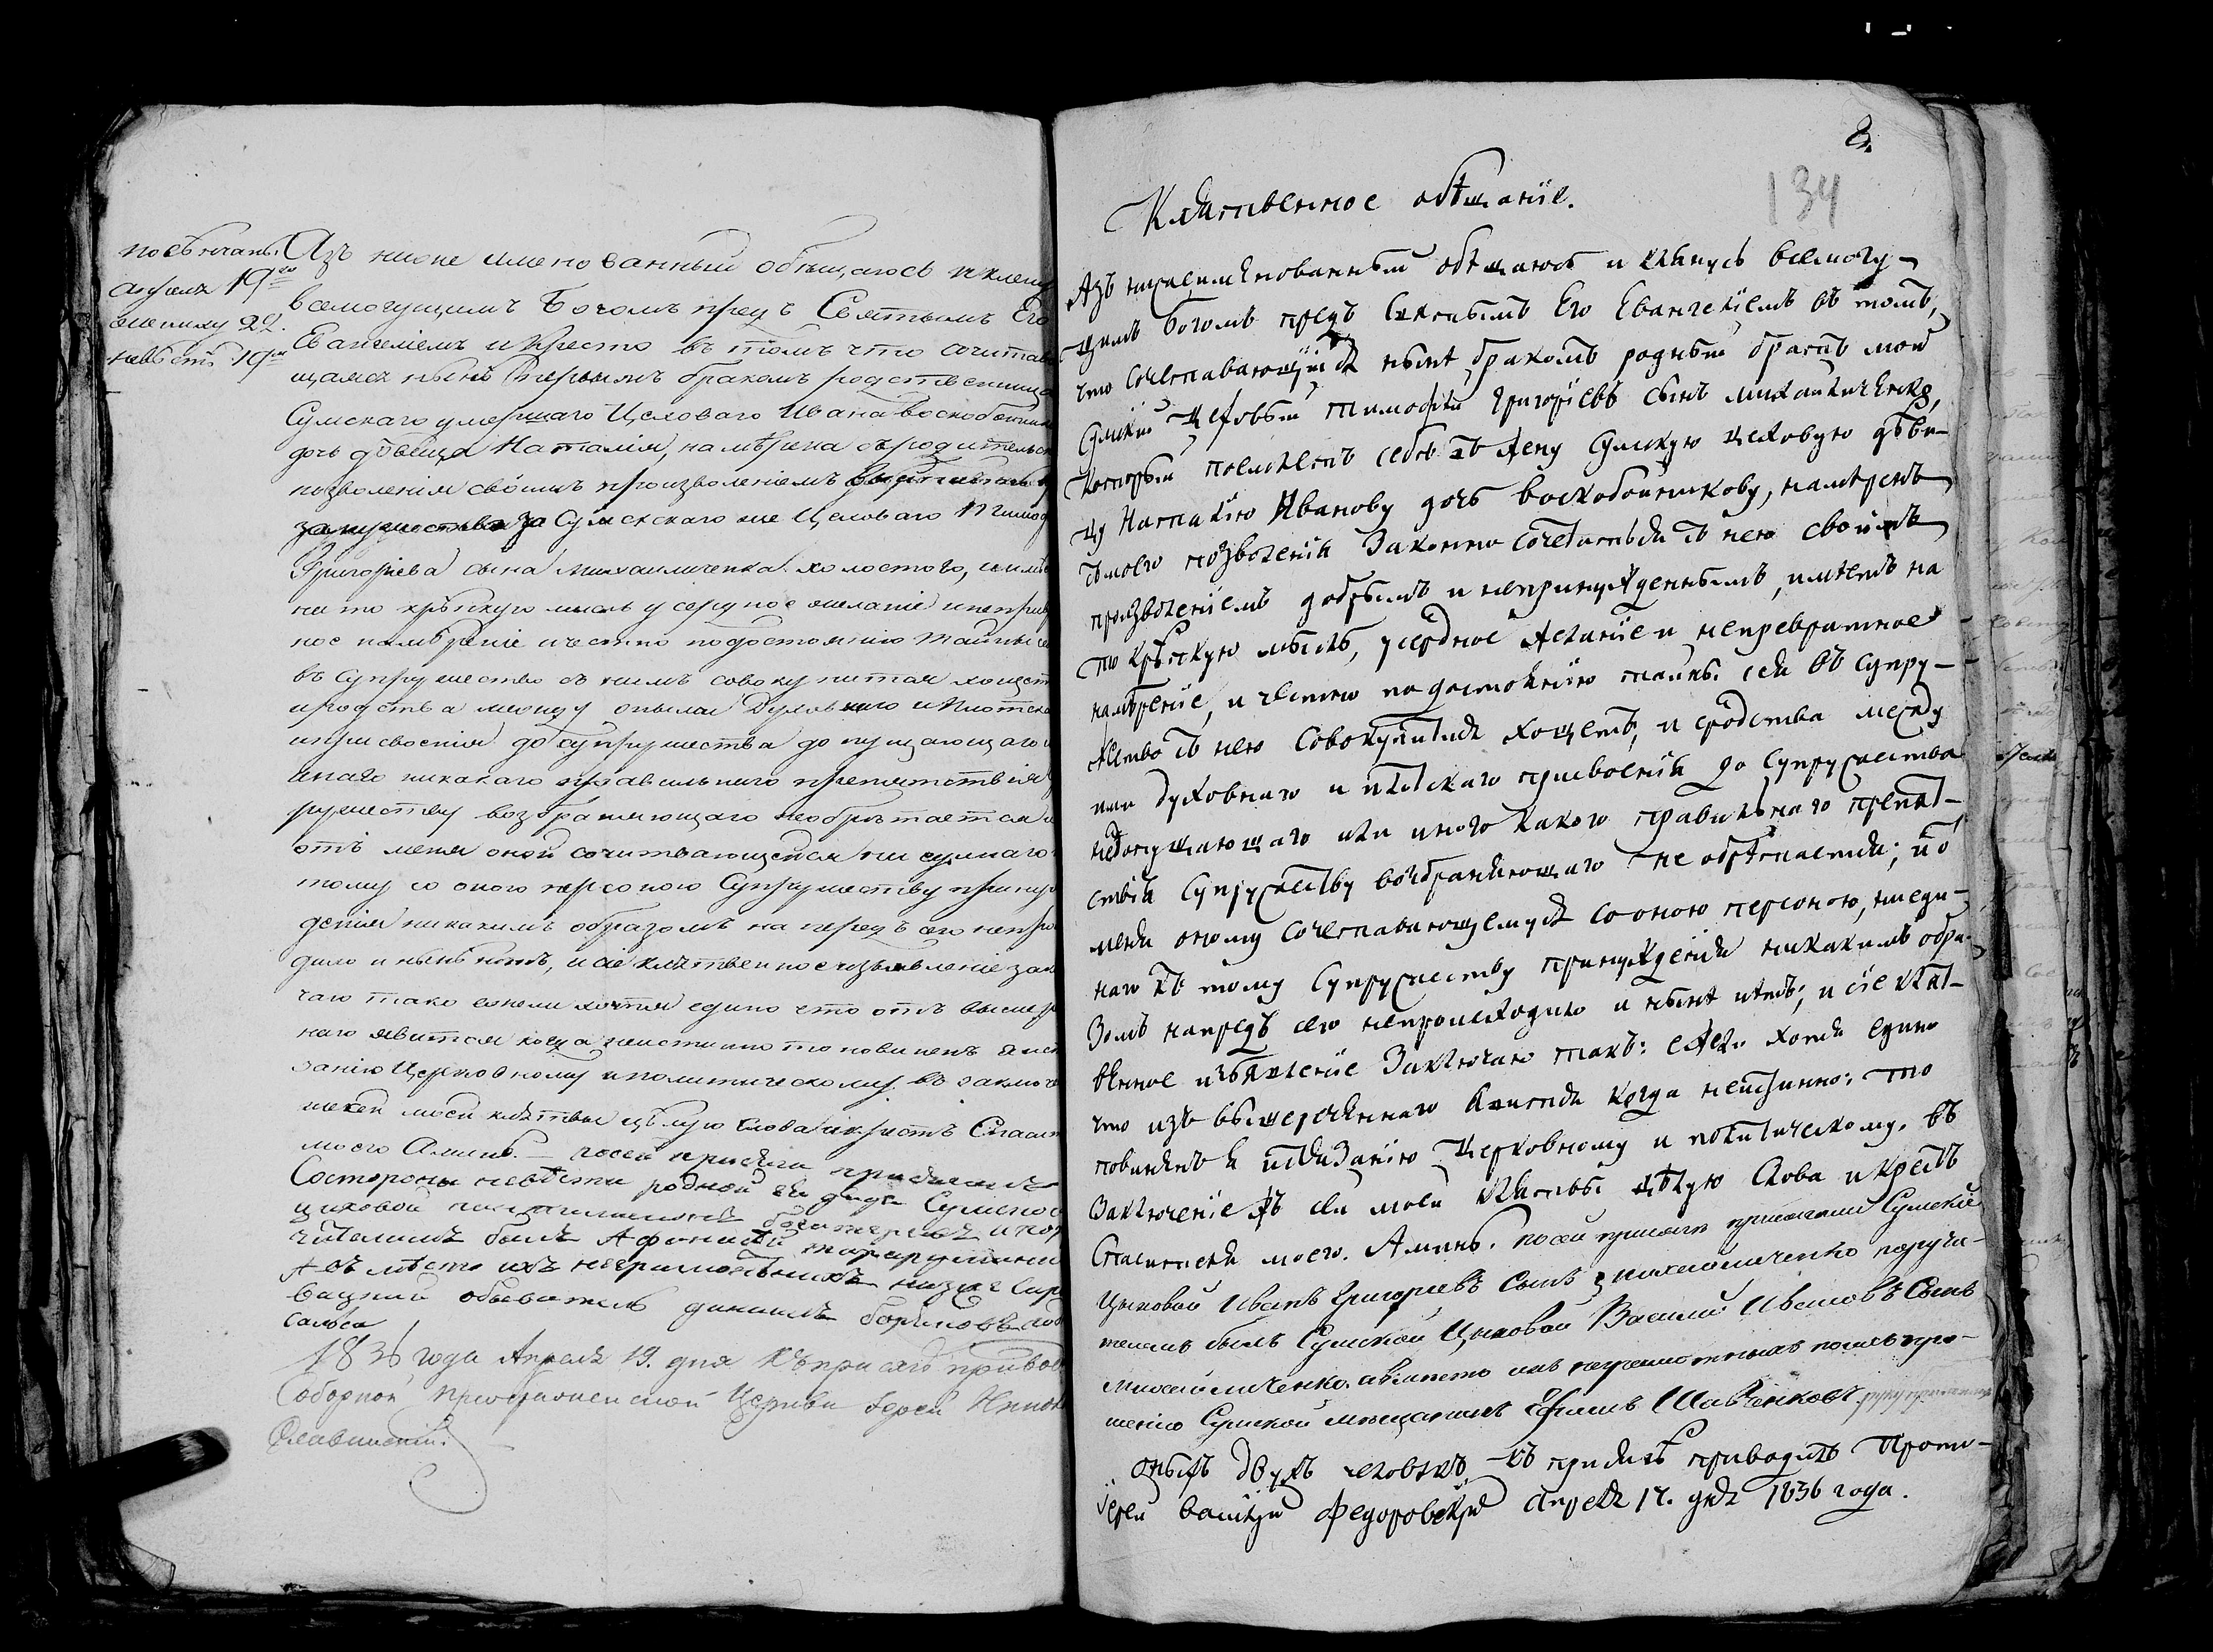 повѣнчаны
апреля 19го
жениху 22.
невѣстѣ 19ть
Азъ ниже имянованный обѣщаюсь и клену
всемогущимъ Богомъ предъ Святымъ Его
Евангелiемъ и Кресто въ томъ что сочитаю
щаяся нынѣ Первымъ бракомъ родственница
Сумскаго умершаго Цеховаго Ивана воскобойник
дочь дѣвица Наталiя, намѣрена съ родительск
позволенiя своимъ произволенiемъ
замужество за Сумскаго же Цеховаго Тимоф
Григорiева сына Михаиличенка холостого, имѣ
на то крѣпкую мысль усердное желанiе и непрев
ное намѣренiе и честно по достоянiю тайны се
въ Супружество съ нимъ совокупится хощетъ
и родства между оныма Духовнаго и Плотска
и присвоенiя до супружества допущающаго
инаго никакаго правильнаго препятствiя
ружеству возбраняющаго необрѣтается
отъ меня оной сочитавающейся ни единаго
тому со оною персоною Супружеству принуж
денiя никакимъ образомъ на передъ сего непро
дило и нынѣ нѣтъ, и сiе клятвенное изъявленiе зак
чаю тако ежели хотя едино что отъ вышер
наго явится когда неистинно то повиненъ я ист
занiю Церковному и политическому. въ заключ
же сей моей клятвы цѣлую слова и крестъ Спасит
моего Аминь. — посей присяги присягалъ
Состороны невѣсти родной ея дядя Сумской
цеховой
чителемъ былъ Афанасiй
А вмѣсто ихъ неграмотныхъ
обыватель данiилъ
1836 года Апреля 19. дня къ присягѣ привод
Соборной Преображенской Церкви Iерей
Славинскiй.
134
Клятвенное обѣщанiе.
Азъ нижеимянованный обѣщаюсь и клянусь всемогу-
щимъ Богомъ предъ Святымъ Его Евангелiемъ въ томъ,
что сочетавающiйся нынѣ бракомъ родный братъ мой
Сумскiй Цеховый Тимофей Григорiевъ сынъ Михаиличенко,
который поемлетъ себѣ въ жену Сумскую цеховую дѣви-
цу Наталiю Иванову дочь воскобойникову, намѣренъ
съ моего позволенiя Законно сочетаться съ нею своимъ
произволенiемъ добрымъ и непринужденнымъ, имѣетъ на
то крѣпкую мысль, усердное желанiе и непревратное
намѣренiе, и честно по достоянiю тайны сея въ супру-
жество съ нею совокупится хощетъ, и сродства между
ими духовнаго и плотскаго присвоенiя до супружества
недопущающаго или иного какого правильнаго препят-
ствiя супружеству возбраняющаго не обрѣтается; и о
меня оному сочетавающемуся со оною персоною, ниеди-
наго къ тому супружеству принужденiя никакимъ обра-
зомъ напредъ сего непроисходило и нынѣ нѣтъ; и сiе клят-
венное изъявленiе заключаю такъ: ежели хотя едино
что изъ вышереченнаго явится когда неистинно: то
повиненъ я истязанiю Церковному и политическому. въ
заключенiе же сея моея клятвы цѣлую слова и крестъ
Спасителя моего. Аминь. посей присяги присягали Сумскiе
Цеховой Иванъ Григорьевъ сынъ михайличенко поручи-
телемъ былъ Сумской Цеховой Василiй Ивановъ сынъ
михайличенко. авместо ихъ неграмотныхъ поихъ про-
шенiю Сумской мещанинъ Ефимъ Шавченковъ
оныхъ двухъ человѣкъ къ присягѣ приводилъ Прото-
iерей Василiй Федоровскiй Апреля 17. дня 1836 года.